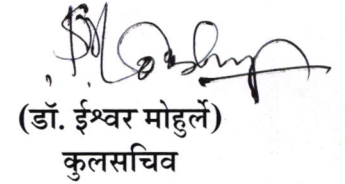 (डॉ. ईश्वर मोहुर्ले)
कुलसचिव